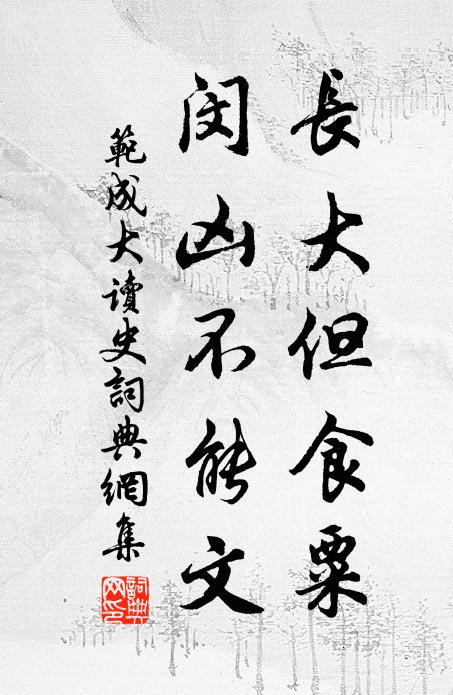 長大但食粟
閔凶不能文
範成大讀史詞典網集
詞典網印